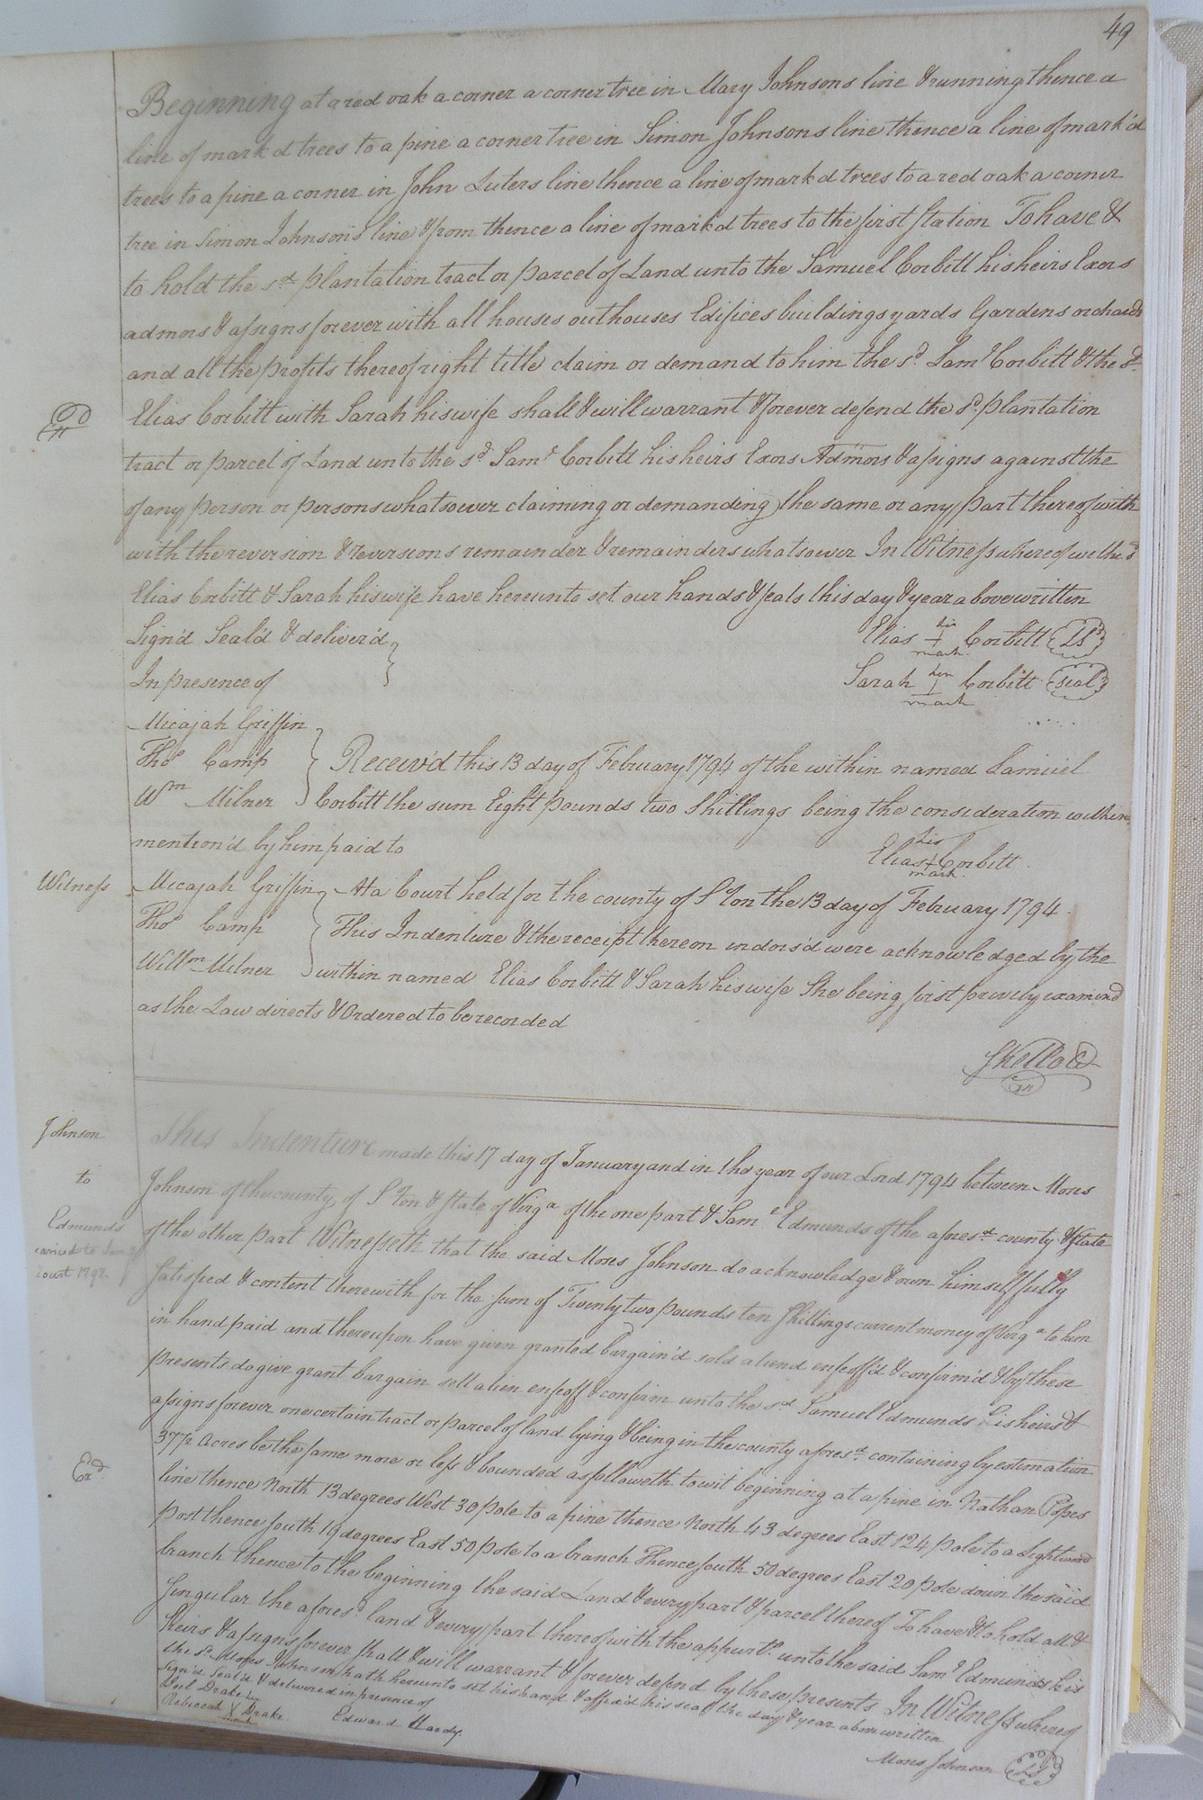 49
Beginning at a red oak a corner a corner tree in Mary Johnsons line & running thence a
line of mark'd trees to a pine a corner tree in Simon Johnsons line thence a line of mark'd
trees to a pine a corner in John Luters line thence a line of mark'd trees to a red oak a corner
tree in Simon Johnson's line & from thence a line of mark'd trees to the first station To have &
to hold the sd plantation tract or parcel of Land unto the Samuel Corbitt his heirs Exors
admors & assigns forever with all houses outhouses Edifices buildings yards Gardens orchards
and all the profits thereof right title claim or demand to him the sd Saml Corbitt & the sd
Elias Corbitt with Sarah his wife shall & will warrant & forever defend the sd plantation
tract or parcel of Land unto the sd Saml Corbitt his heirs Exors Admors & assigns against the
of any person or persons whatsoever claiming or demanding the same or any part thereof with
with the reversion & reversions remainder & remainders whatsoever In Witness whereof we the sd
Elias Corbitt & Sarah his wife have hereunto set our hands & seals this day & year above written
Sign'd Seal'd & deliver'd
In presence of
Elias his + mark Corbitt LS
Sarah her mark Corbitt seal
Micajah Griffin
Thos Camp
Wm Milner
Receiv'd this 13 day of February 1794 of the within named Samuel
Corbitt the sum Eight pounds two Shillings being the consideration within
mention'd by him paid to
Elias his + mark Corbitt
Witness
Micajah Griffin
Thos Camp
Willm Milner
At a Court held for the county of S Ton the 13 day of February 1794
This Indenture & the receipt thereon indors'd were acknowledged by the
within named Elias Corbitt & Sarah his wife She being first privily examined
as the Law directs & Ordered to be recorded
Johnson
to
Edmunds
This Indenture made this 17 day of January and in the year of our Lord 1794 between Moses
Johnson of the county of S Ton & State of Virga of the one part & Saml Edmunds of the aforesd county & State
of the other part Witnesseth that the said Moses Johnson do acknowledge & own himself fully
satisfied & content therewith for the sum of Twenty two pounds ten shillings current money of Virga to him
in hand paid and thereupon have given granted bargain'd sold aliend enfeoff'd & confirm'd & by these
presents do give grant bargain sell alien enfeoff & confirm unto the sd Samuel Edmunds his heirs &
assigns forever one certain tract or parcel of land lying & being in the county aforesd containing by estimation
37½ Acres be the same more or less & bounded as followeth to wit beginning at a pine in Nathan Popes
line thence North 13 degrees West 30 pole to a pine thence North 43 degrees East 124 pole to a Lightwood
post thence South 19 degrees East 50 pole to a branch Thence South 50 degrees East 20 pole down the said
branch thence to the beginning the said Land & every part & parcel thereof To have & to hold all &
singular the aforesd land & every part thereof with the appurts unto the said Saml Edmunds his
Heirs & assigns forever shall & will warrant & forever defend by these presents In Witness whereof
the sd Moses Johnson hath hereunto set his hand & affix'd his seal the day & year above written
Sign'd Seal'd & delivered in presence of
Drake
Rebeccah X Drake
mark
Edward Hardy
Moses Johnson LS